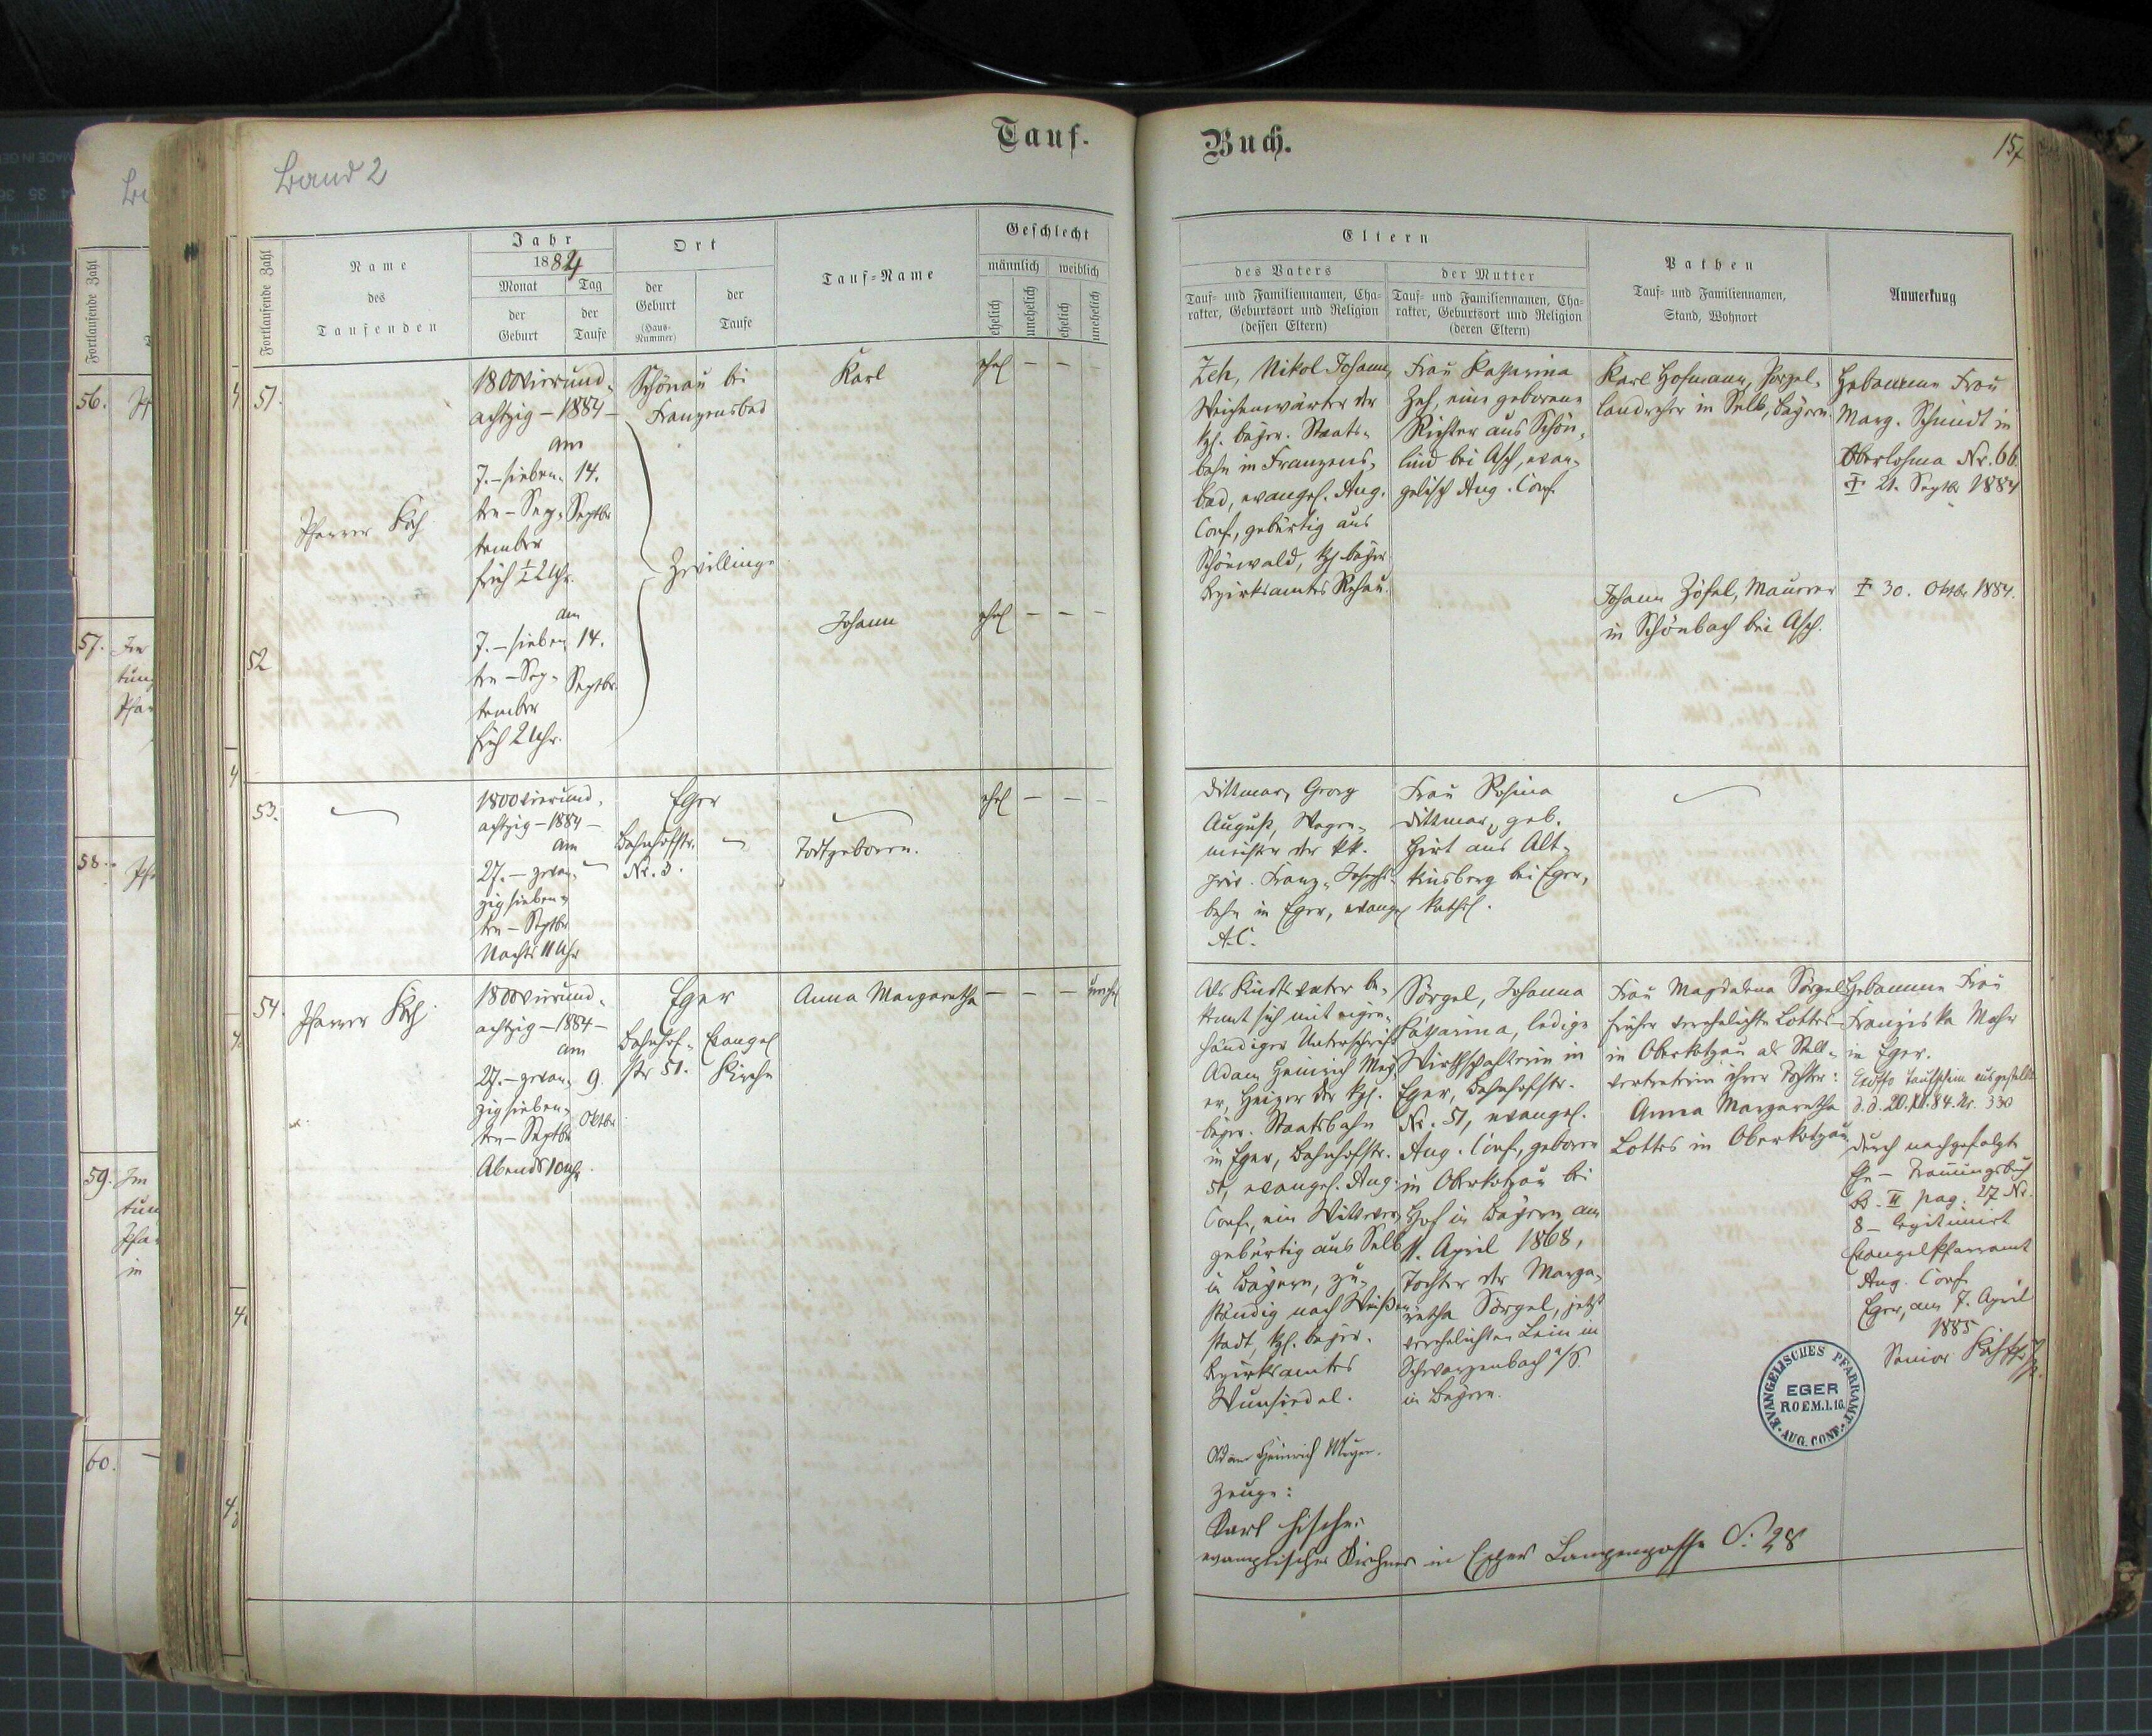 Band 2
Tauf-
Buch.
157
Fortlaufende Zahl
Name
des
Taufenden
Jahr
1884
Monat
der
Geburt
Tag
der
Taufe
Ort
der
Geburt
(Haus-
Nummer)
der
Taufe
Tauf-Name
Geschlecht
männlich
weiblich
ehelich
unehelich
ehelich
unehelich
Eltern
des Vaters
Tauf- und Familiennamen, Cha-
rakter, Geburtsort und Religion
(dessen Eltern)
der Mutter
Tauf- und Familiennamen, Cha-
rakter, Geburtsort und Religion
(deren Eltern)
Pathen
Tauf- und Familiennamen,
Stand, Wohnort
Anmerkung
51.
Pfarrer Koch
1800vierund-
achtzig – 1884 –
am
7. – sieben-
ten – Sep-
tember
früh ½2 Uhr.
14.
Septbr
Schönau bei
Franzensbad
Zwillinge
Karl
ehel
Zeh, Nikol Johann,
Weichenwärter der
kgl. bayer. Staats-
bahn in Franzens-
bad, evangel. Aug.
Conf., gebürtig aus
Schönwald, kgl bayer.
Bezirksamtes Rehau.
Frau Katharina
Zeh, eine geborene
Richter aus Schön-
lind bei Asch, evan-
gelisch Aug. Conf.
Karl Hofmann, Porzel-
landreher in Selb, Bayern.
Hebamme Frau
Marg. Schmidt in
Oberlohma Nr. 66.
† 21. Septbr 1884
52
am
7. – sieben-
ten – Sep-
tember
früh 2 Uhr.
14.
Septbr.
Johann
ehel
Johann Zöfel, Maurer
in Schönbach bei Asch.
† 30. Oktbr 1884.
53.
1800vierund-
achtzig – 1884 –
am
27. – zwan-
zigsieben-
ten – Septbr
Nachts 11 Uhr
Eger
Bahnhofstr.
Nr. 3.
Todtgeboren.
ehel
Dittmar, Georg
August, Wagen-
meister der kk.
priv. Franz-Josephs-
bahn in Eger, evangel
A.C.
Frau Rosina
Dittmar, geb.
Hirt aus Alt-
kinsberg bei Eger,
kathol.
54.
Pfarrer Koch
1800vierund-
achtzig – 1884 –
am
27. – zwan-
zigsieben-
ten – Septbr
Abends 10 Uhr.
9.
Oktbr.
Eger
Bahnhof-
str 51.
Evangel
Kirche
Anna Margaretha
unehel
Als Kindsvater be-
kennt sich mit eigen-
händiger Unterschrift
Adam Heinrich Mey-
er, Heizer der kgl.
bayer. Staatsbahn
in Eger, Bahnhofstr.
51, evangel. Aug.
Conf., ein Wittwer,
gebürtig aus Selb
in Bayern, zu-
ständig nach Weißen-
stadt, kgl. bayer.
Bezirksamtes
Wunsiedel.
Adam Heinrich Meyer.
Zeuge:
Karl Fischer
evangelischer Kirchner in Eger Lampengasse No: 28
Sörgel, Johanna
Katharina, ledige
Wirthschafterin in
Eger, Bahnhofstr.
Nr. 51, evangel.
Aug. Conf., geboren
in Oberkotzau bei
Hof in Bayern am
11. April 1868,
Tochter der Marga-
retha Sörgel, jetzt
verehelichten Lein in
Schwarzenbach a/S.
in Bayern.
Frau Magdalena Sörgel,
früher verehelichte Lottes
in Oberkotzau als Stell-
vertreterin ihrer Tochter:
Anna Margaretha
Lottes in Oberkotzau
Hebamme Frau
Franziska Maher
in Eger.
Taufschein ausgestellt
d.d. 20.XII.84. Nr. 330
Durch nachgefolgte
Ehe – Trauungsbuch
Bd. II pag. 27 Nr.
8 – legitimirt
Evangel Pfarramt
Aug. Conf.
Eger, am 7. April
1885
Senior
EVANGELISCHES PFARRAMT
EGER
ROEM.1.16.
AUG. CONF.
56.
57.
58.
59.
60.